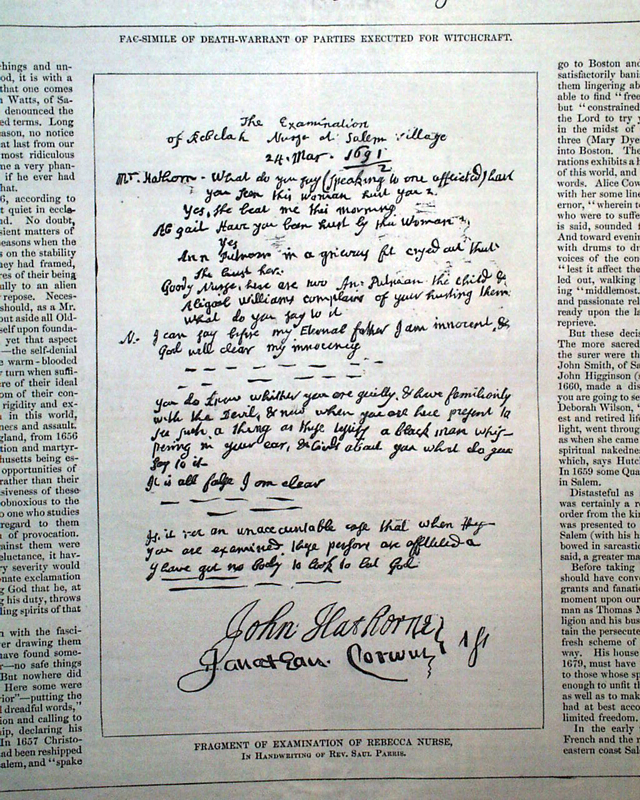 FAC-SIMILE OF DEATH-WARRANT OF PARTIES EXECUTED FOR WITCHCRAFT.
chings and un-
od, it is with a
that one comes
Watts, of Sa-
denounced the
ed terms. Long
eason, no notice
at last from our
most ridiculous
me a very phan-
if he ever had
hat.
6, according to
t quiet in eccle-
No doubt,
sient matters of
easons when the
s on the stability
hey had framed,
res of their being
ally to an alien
repose. Neces-
should, as a Mr.
out aside all Old-
self upon founda-
yet that aspect
—the self-denial
e warm-blooded
turn when suffi-
ere of their ideal
om of their con-
rigidity and ex-
in this world,
ners and assault.
gland, from 1656
tion and martyr-
husetts being es-
opportunities of
rather than their
siveness of these
obnoxious to the
o one who studies
regard to them
n of provocation.
ainst them were
eluctance, it hav-
y severity would
onate exclamation
g God that he, at
g his duty, throws
ling spirits of that
n with the fasci-
er drawing them
have found some-
r—no safe things
But nowhere did
Here some were
rior"—putting the
dreadful words,"
ion and calling to
hip, declaring his
In 1657 Christo-
ad been reshipped
alem, and "spake
The Examination
of Rebekah Nurse at Salem village
24. Mar. 1691/2
Mr. Hathorn - What do you say (speaking to one afflicted) have
you seen this Woman hurt you?
Yes, she beat me this morning
Abigail Have you been hurt by this Woman?
Yes
Ann Putnam in a grievous fit cryed out that
she hurt her.
Goody Nurse, here are two An: Putnam the child &
Abigail Williams complains of your hurting them
What do you say to it
N. I can say before my Eternal father I am innocent, &
God will clear my innocency
You do know whither you are guilty, & have familiarity
with the Devil, & now when you are here present to
see such a thing as these testify a black man whis-
pering in your ear, & birds about you what do you
say to it
It is all false I am clear
Is it not an unaccountable case that when
you are examined these persons are afflicted
I have got no body to look to but God
John Hathorne
Jonathan. Corwin
FRAGMENT OF EXAMINATION OF REBECCA NURSE,
IN HANDWRITING OF REV. SAUL PARRIS.
go to Boston and
satisfactorily bani
them lingering ab
able to find "free
but "constrained
the Lord to try y
in the midst of
three (Mary Dye
into Boston. The
rations exhibits a
of this world, and
words. Alice Con
with her some lin
ernor, "wherein to
who were to suffe
is said, sounded f
And toward evenin
with drums to dr
voices of the con
"lest it affect the
led out, walking
ing "middlemost.
and passionate rel
ready upon the la
reprieve.
But these deci
The more sacred
the surer were th
John Smith, of Sa
John Higginson (
1660, made a di
you are going to se
Deborah Wilson,
est and retired life
light, went through
as when she came
spiritual nakednes
which, says Hutch
In 1659 some Qua
in Salem.
Distasteful as
was certainly a re
order from the kin
was presented to
Salem (with his h
bowed in sarcastic
said, a greater ma
Before taking
should have conv
grants and fanatic
moment upon our
man as Thomas M
ligion and his bus
tain the persecute
fresh scheme of
way. His house
1679, must have
to those whose sp
enough to unfit th
as well as to mak
had at best acco
limited freedom.
In the early
French and the r
eastern coast Sal